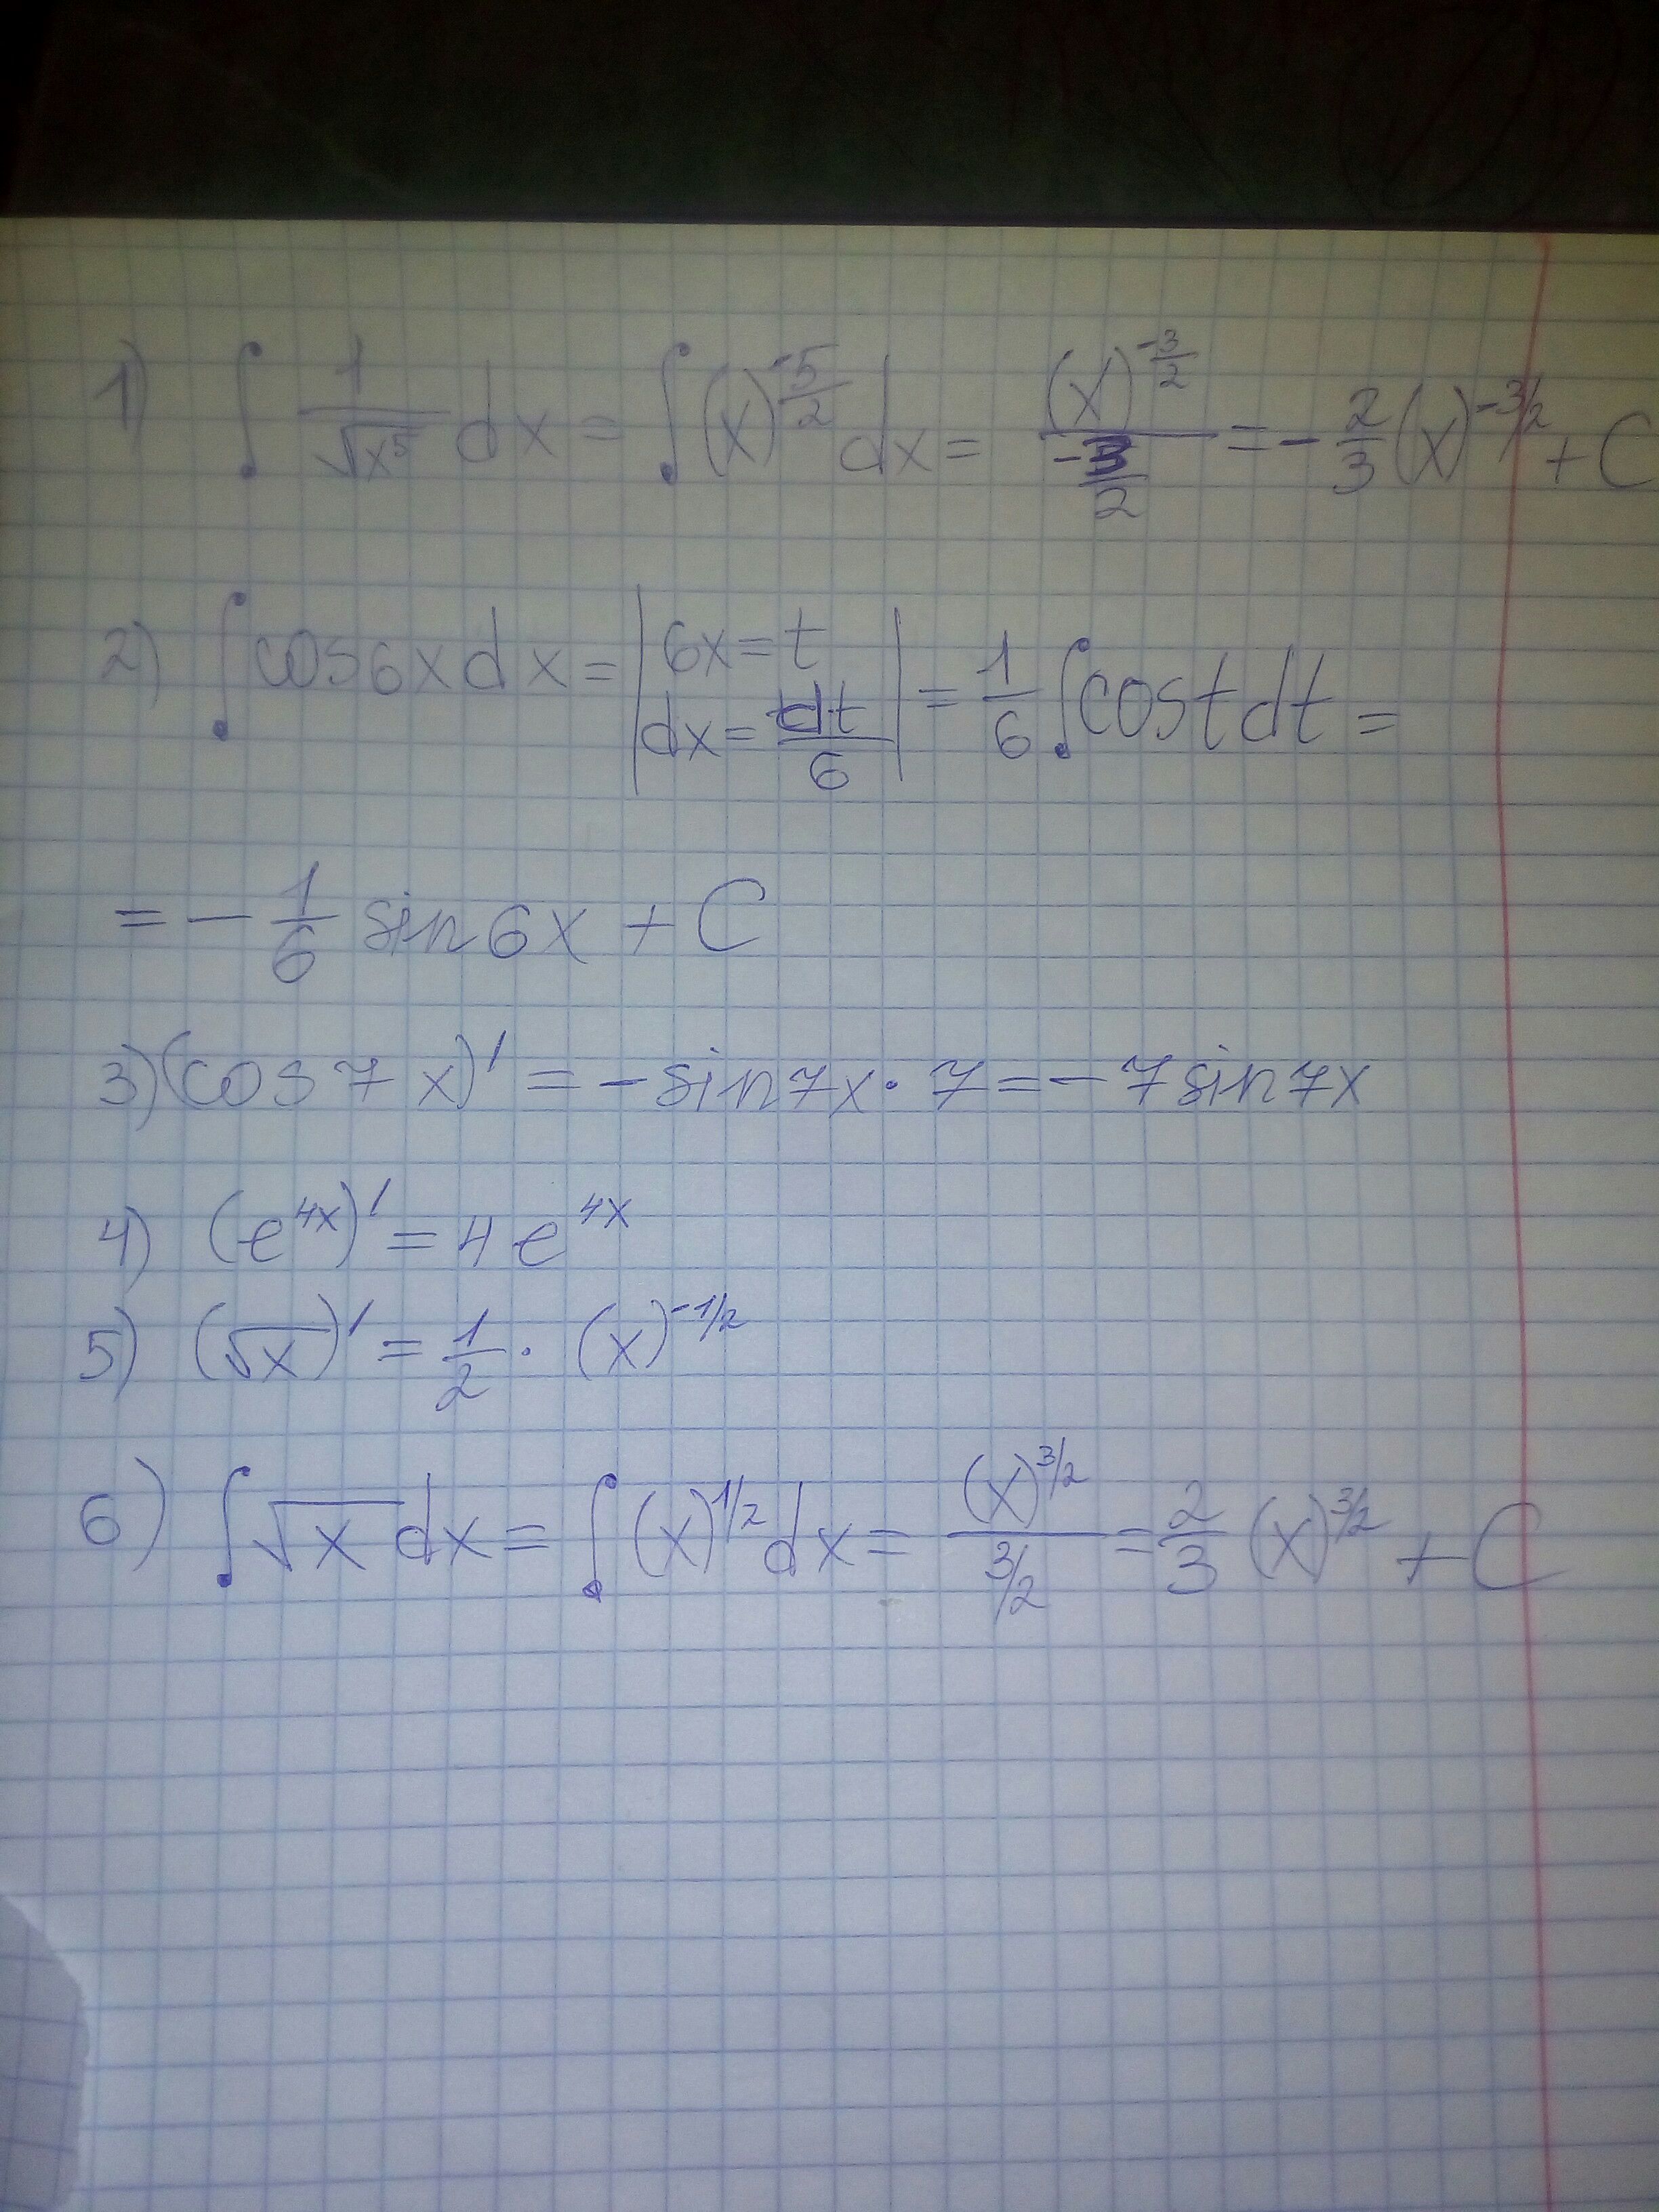 1) ∫ 1/√x⁵ dx = ∫(x)^(-5/2) dx = (x)^(-3/2) / (-3/2) = -2/3 (x)^(-3/2) + C
2) ∫cos6xdx = |6x=t dx=dt/6| = 1/6 ∫cost dt =
= -1/6 sin6x + C
3) (cos7x)' = -sin7x·7 = -7sin7x
4) (e^(4x))' = 4e^(4x)
5) (√x)' = 1/2 · (x)^(-1/2)
6) ∫√x dx = ∫(x)^(1/2) dx = (x)^(3/2) / (3/2) = 2/3 (x)^(3/2) + C